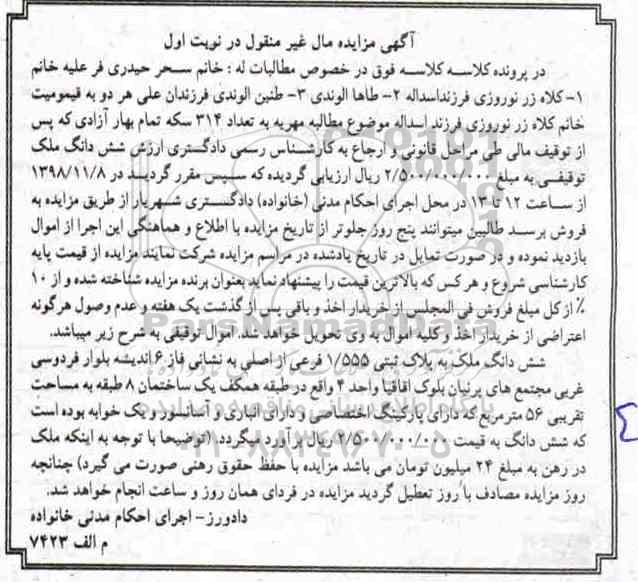 آگهی مزایده مال غیر منقول در نوبت اول
در پرونده کلاسه کلاسه فوق در خصوص مطالبات له : خانم سحر حیدری فر علیه خانم
۱- کلاه زر نوروزی فرزنداسداله ۲- طاها الوندی ۳- طنین الوندی فرزندان علی هر دو به قیمومیت
خانم کلاه زر نوروزی فرزند اسداله موضوع مطالبه مهریه به تعداد ۳۱۴ سکه تمام بهار آزادی که پس
از توقیف مالی طی مراحل قانونی و ارجاع به کارشناس رسمی دادگستری ارزش شش دانگ ملک
توقیفی به مبلغ ۲/۵۰۰/۰۰۰/۰۰۰ ریال ارزیابی گردیده که سپس مقرر گردید در ۱۳۹۸/۱۱/۸
از ساعت ۱۲ تا ۱۳ در محل اجرای احکام مدنی (خانواده) دادگستری شهریار از طریق مزایده به
فروش برسد طالبین میتوانند پنج روز جلوتر از تاریخ مزایده با اطلاع و هماهنگی این اجرا از اموال
بازدید نموده و در صورت تمایل در تاریخ یادشده در مراسم مزایده شرکت نمایند مزایده از قیمت پایه
کارشناسی شروع و هر کس که بالاترین قیمت را پیشنهاد نماید بعنوان برنده مزایده شناخته شده و از ۱۰
٪ از کل مبلغ فروش فی المجلس از خریدار اخذ و باقی پس از گذشت یک هفته و عدم وصول هرگونه
اعتراضی از خریدار اخذ و کلیه اموال به وی تحویل خواهد شد. اموال توقیفی به شرح زیر میباشد.
شش دانگ ملک به پلاک ثبتی ۱/۵۵۵ فرعی از اصلی به نشانی فاز ۶ اندیشه بلوار فردوسی
غربی مجتمع های پرنیان بلوک اقاقیا واحد ۴ واقع در طبقه همکف یک ساختمان ۸ طبقه به مساحت
تقریبی ۵۶ متر مربع که دارای پارکینگ اختصاصی و دارای انباری و آسانسور و یک خوابه بوده است
که شش دانگ به قیمت ۲/۵۰۰/۰۰۰/۰۰۰ ریال برآورد میگردد. (توضیحا با توجه به اینکه ملک
در رهن به مبلغ ۲۴ میلیون تومان می باشد مزایده با حفظ حقوق رهنی صورت می گیرد) چنانچه
روز مزایده مصادف با روز تعطیل گردید مزایده در فردای همان روز و ساعت انجام خواهد شد.
دادورز- اجرای احکام مدنی خانواده
م الف ۷۴۲۳
ParsNamadData
۰۲۱-۸۸۳۴۹۶۷۰-۵